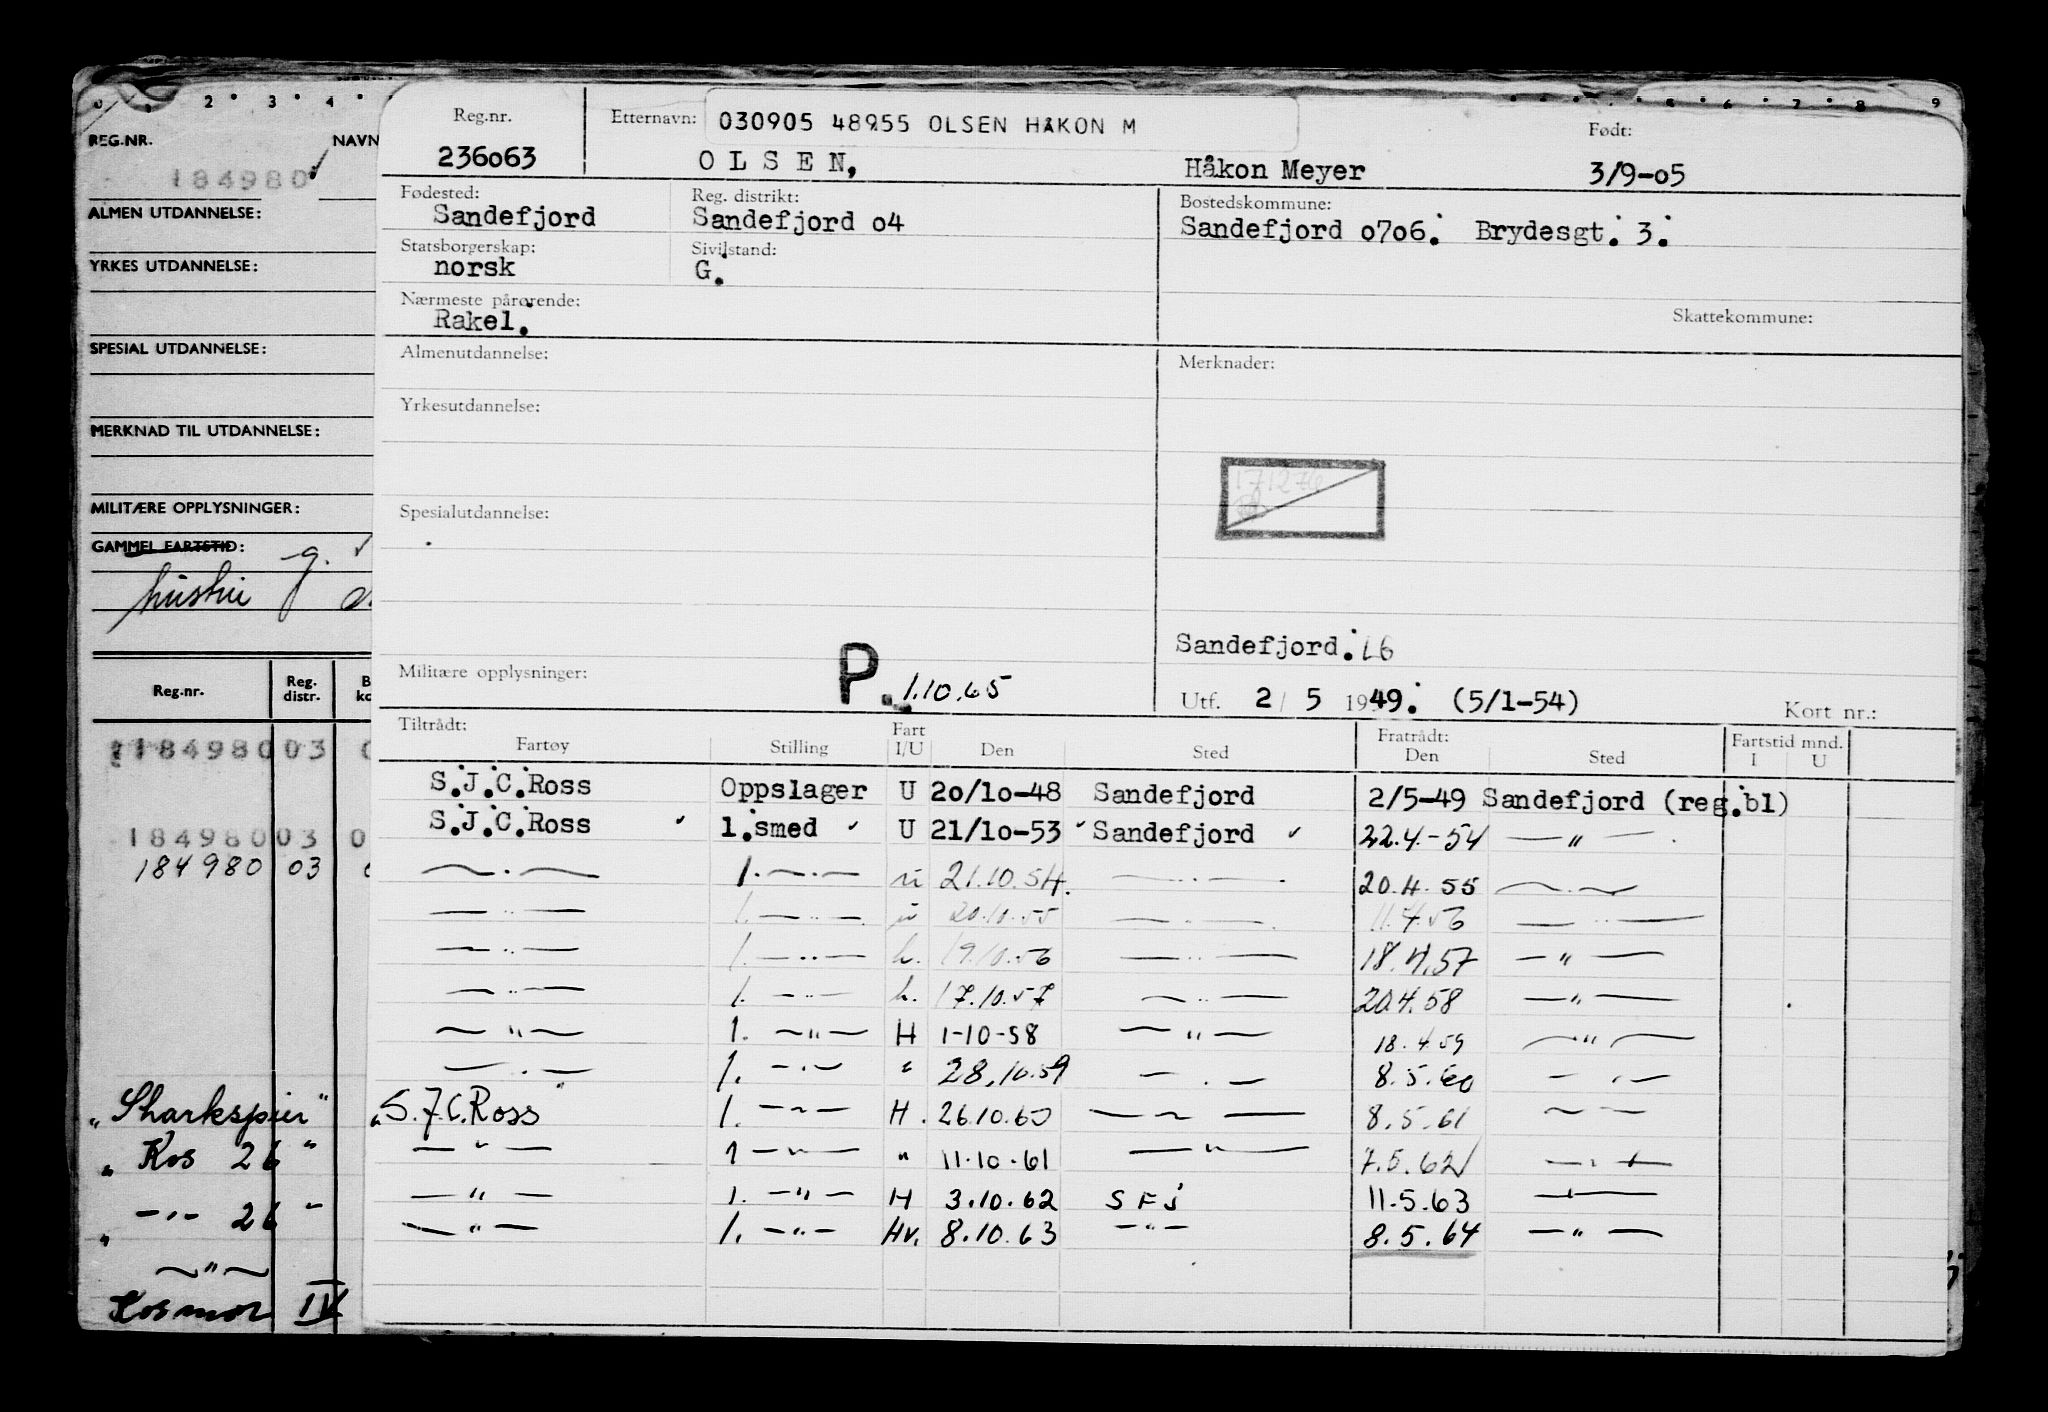 0 1 2 3 4
REG.NR. NAVN
184980
ALMEN UTDANNELSE:
YRKES UTDANNELSE:
SPESIAL UTDANNELSE:
MERKNAD TIL UTDANNELSE:
MILITÆRE OPPLYSNINGER:
GAMMEL FARTSTID: g.
hustru
Reg.nr. Reg. distr. B ko
118498003 0
18498003 0
184980 03
„Sharkspier"
„Kos 26"
„ —"— 26"
—"—
Kosmos IV
5 6 7 8 9
Reg.nr. Etternavn: 030905 48955 OLSEN HÅKON M Født:
236063 OLSEN, Håkon Meyer 3/9-05
Fødested: Reg. distrikt: Bostedskommune:
Sandefjord Sandefjord 04 Sandefjord 0706. Brydesgt. 3.
Statsborgerskap: Sivilstand:
norsk G.
Nærmeste pårørende: Skattekommune:
Rakel.
Almenutdannelse: Merknader:
Yrkesutdannelse:
171274
Spesialutdannelse:
Sandefjord. L6
Militære opplysninger: P. 1.10.65
Utf. 2 / 5 1949. (5/1-54) Kort nr.:
Tiltrådt: Fart Fratrådt: Fartstid mnd.
Fartøy Stilling I/U Den Sted Den Sted I U
S.J.C.Ross Oppslager U 20/10-48 Sandefjord 2/5-49 Sandefjord (reg.bl)
S.J.C.Ross 1.smed U 21/10-53 Sandefjord 22.4.-54 —"—
—"— 1.—"— u 21.10.54. —"— 20.4.55 —"—
—"— 1.—"— u 20.10.55 —"— 11.4.56 —"—
—"— 1.—"— h. 19.10.56 —"— 18.4.57 —"—
—"— 1.—"— h. 17.10.57 —"— 20.4.58 —"—
—"— 1.—"— H 1-10-58 —"— 18.4.59 —"—
—"— 1.—"— " 28.10.59 —"— 8.5.60 —"—
„S.J.C.Ross" 1.—"— H. 26.10.60 —"— 8.5.61 —"—
—"— 1—"— " 11.10.61 —"— 7.5.62 —"—
—"— 1.—"— H 3.10.62 SFj 11.5.63 —"—
—"— 1.—"— Hv. 8.10.63 —"— 8.5.64 —"—